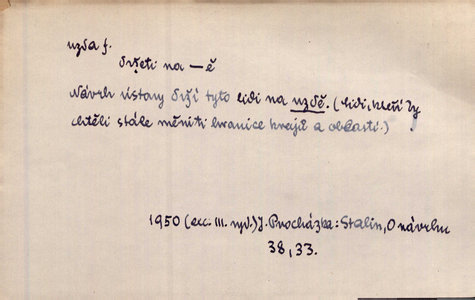 uzda f.
držeti na — ě
Návrh ústavy drží tyto lidi na uzdě. (lidi, kteří by
chtěli stále měniti hranice krajů a oblastí.)
1950 (exc. III. vyd.) J. Procházka: Stalin, O návrhu
38, 33.